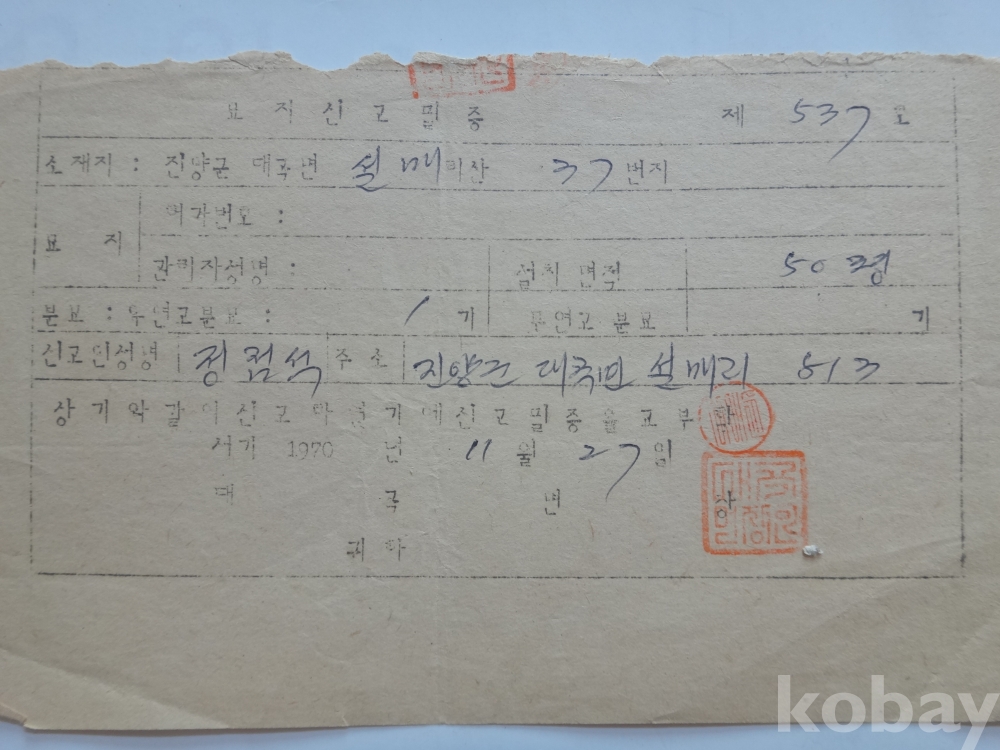 묘 지 신 고 필 증 제 537 호
소재지 : 진양군 대곡면 설매리산 37 번지
묘 지
허가번호 :
관리자성명 : 설치 면적 50평
분묘 : 유연고분묘 : 1 기 무연고 분묘 기
신고인성명 정점석 주소 진양군 대곡면 설매리 813
상 기 와 같 이 신 고 하 기 에 신 고 필 증 을 교 부 함
서기 1970 년 11 월 27 일
대 곡 면 장
귀하
kobay